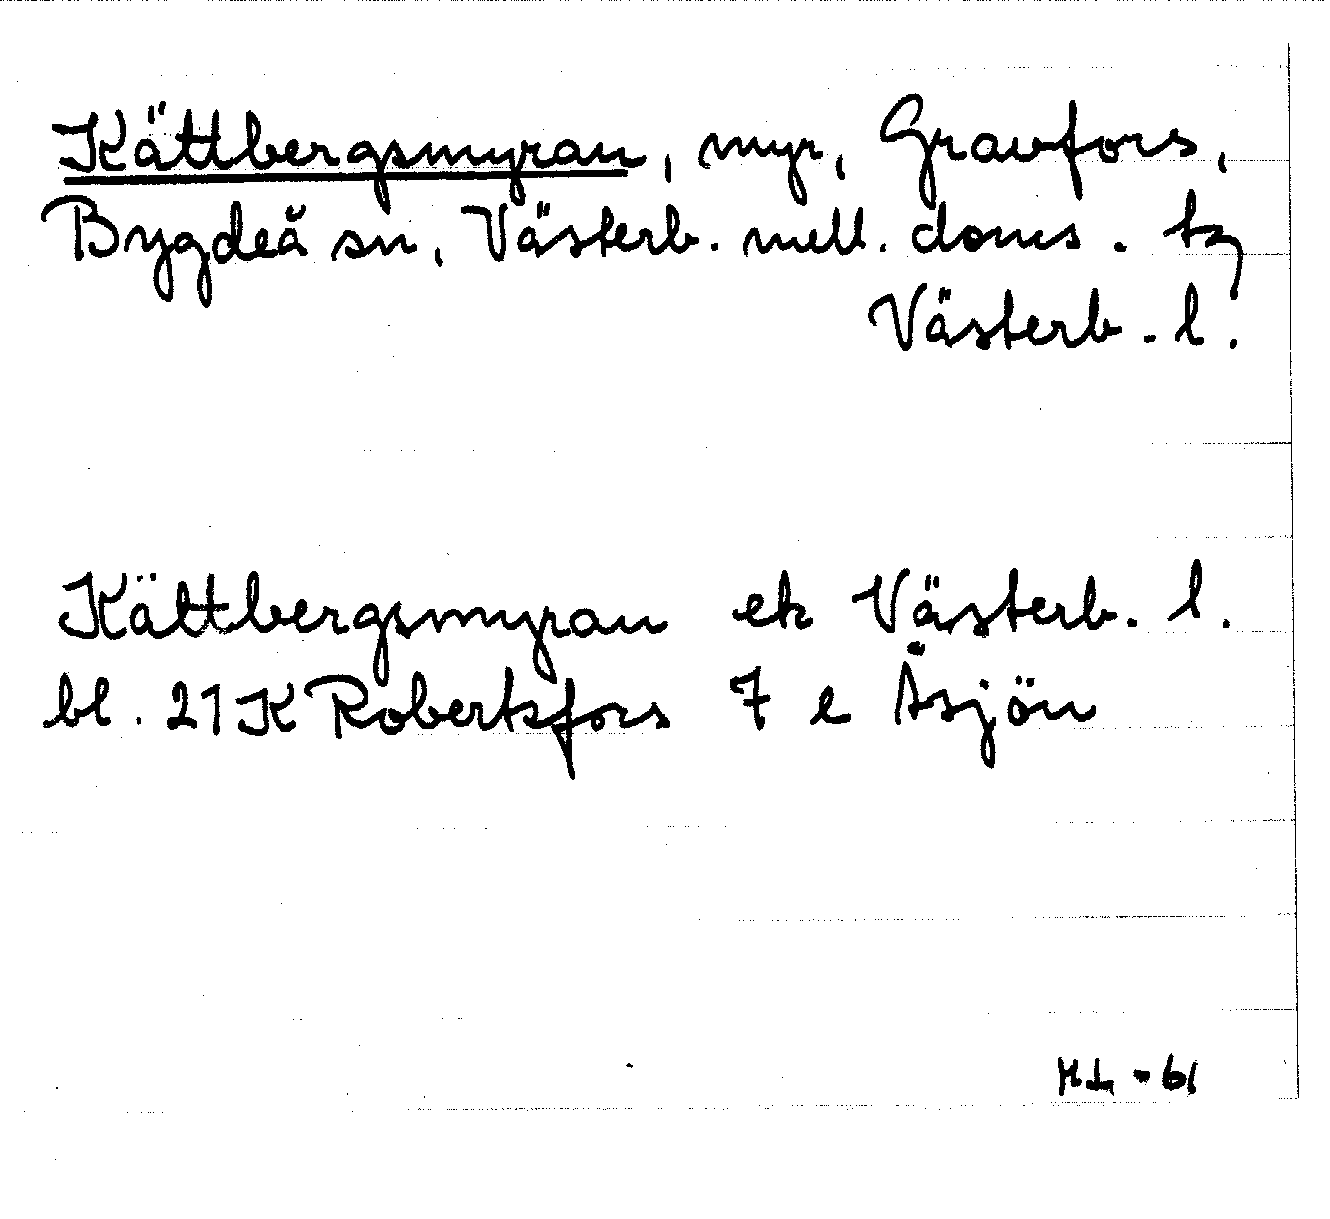 Kättbergsmyran, myr, Gravfors,
Bygdeå sn, Västerb. mell. doms. tg
Västerb. l.
Kättbergsmyran ek Västerb. l.
bl. 21K Robertsfors 7 e Åsjön
ML - 61